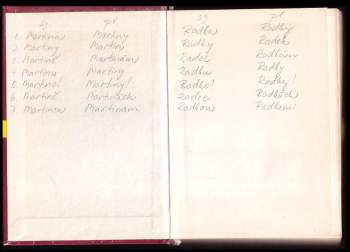 sg pl.
1. Martina Martiny
2. Martiny Martin
3. Martině Martinám
4. Martinu Martiny
5. Martino! Martiny!
6. Martině Martinách
7. Martinou Martinami
sg pl.
Radka Radky
Radky Radek
Radce Radkám
Radku Radky
Radko! Radky!
Radce Radkách
Radkou Radkami